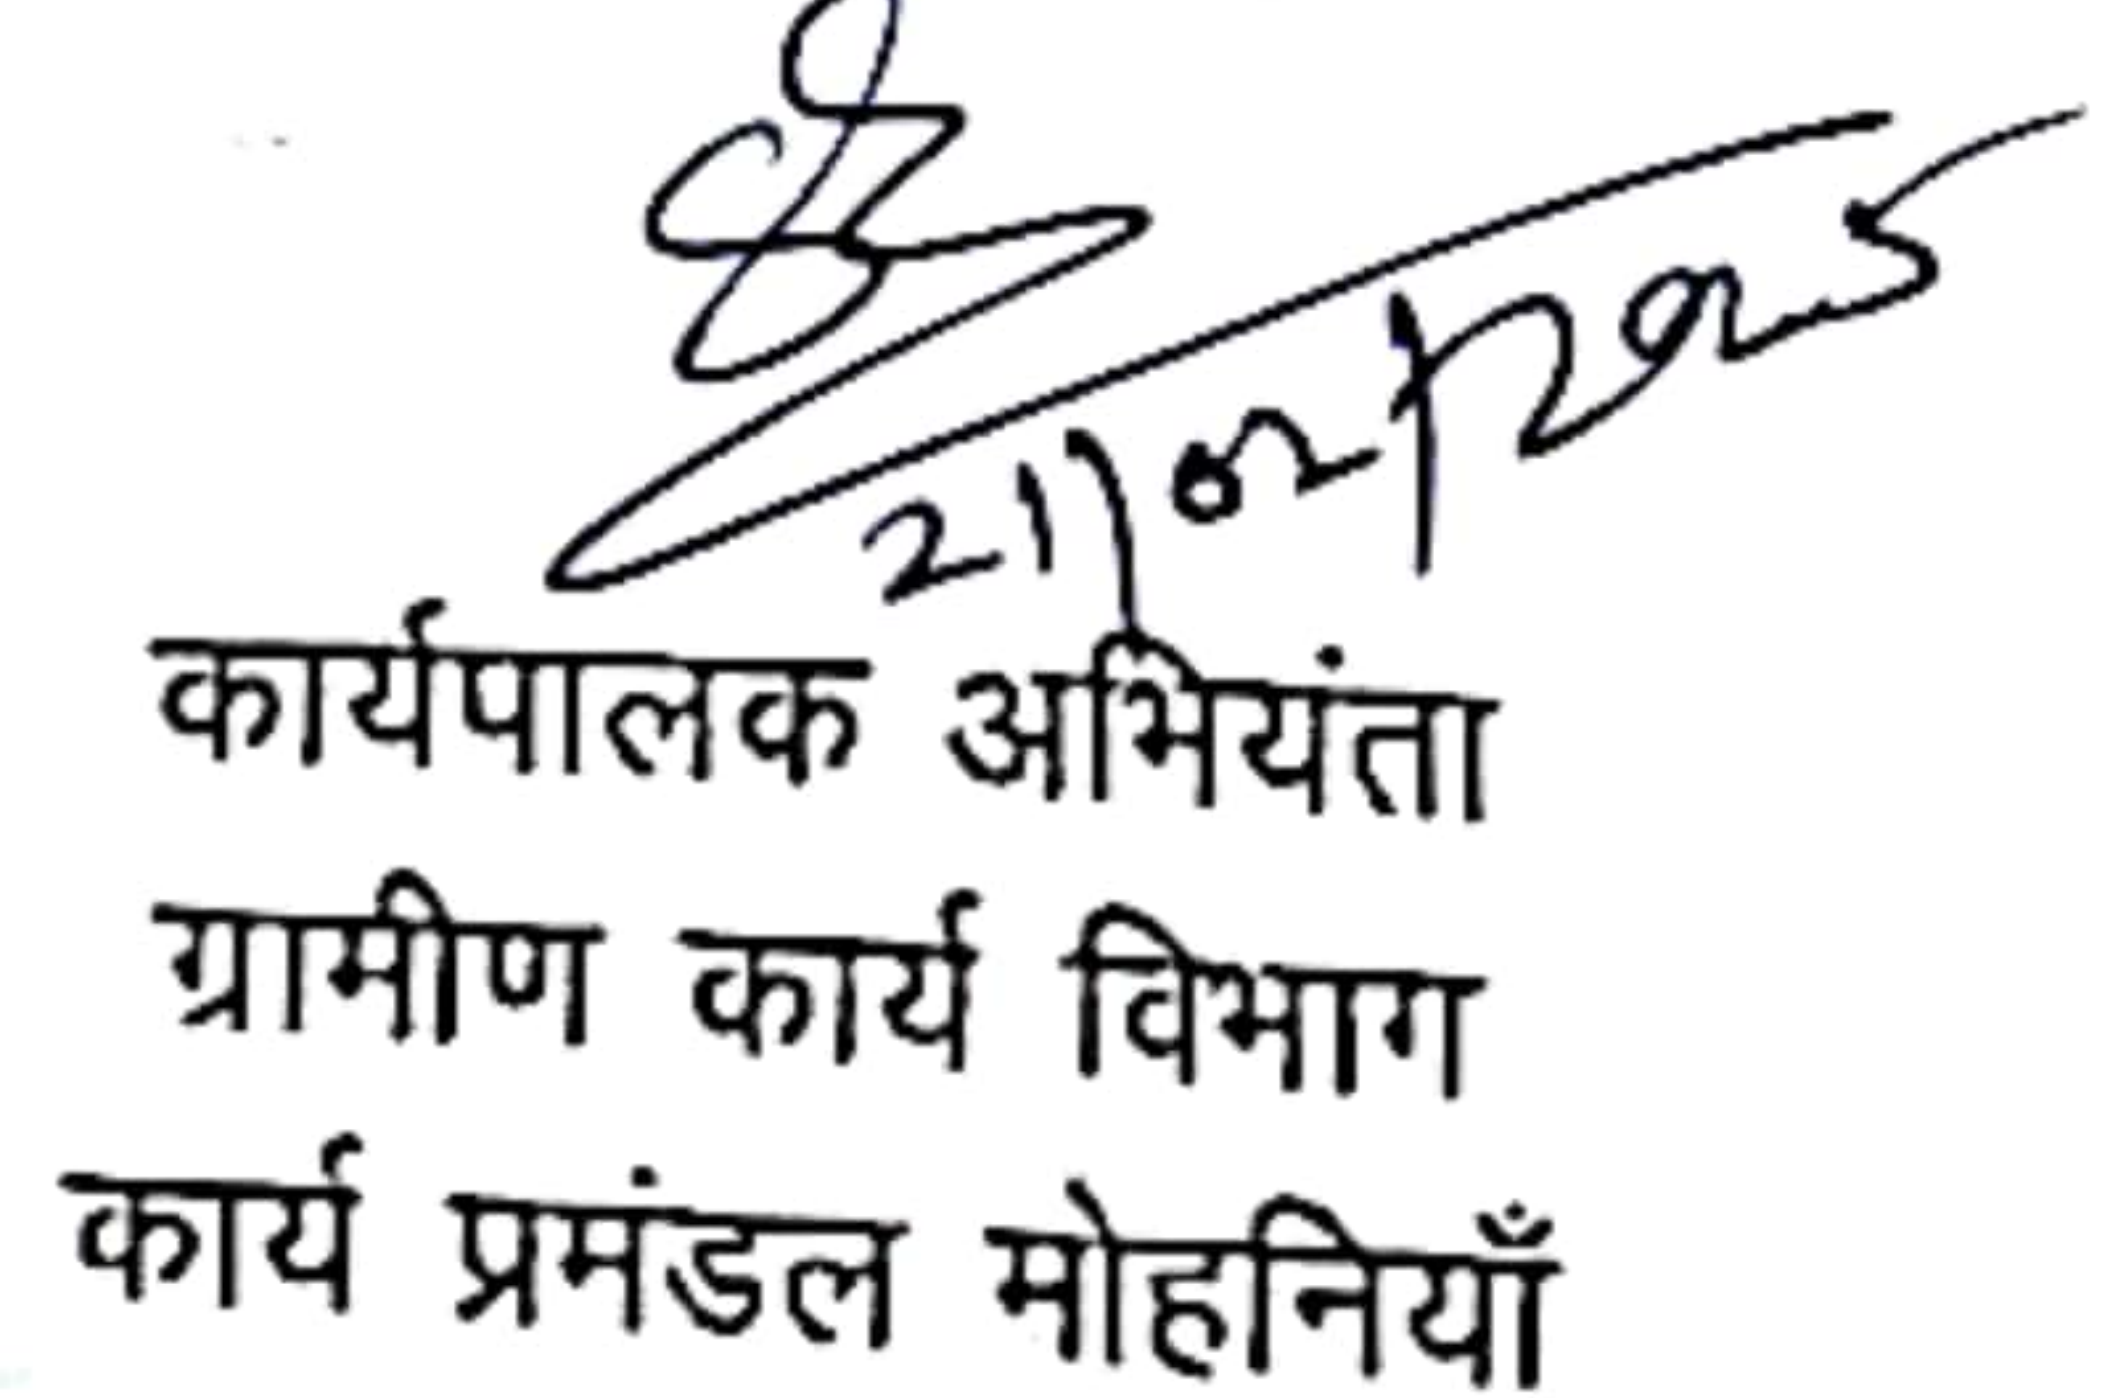 21/02/2025
कार्यपालक अभियंता
ग्रामीण कार्य विभाग
कार्य प्रमंडल मोहनियाँ